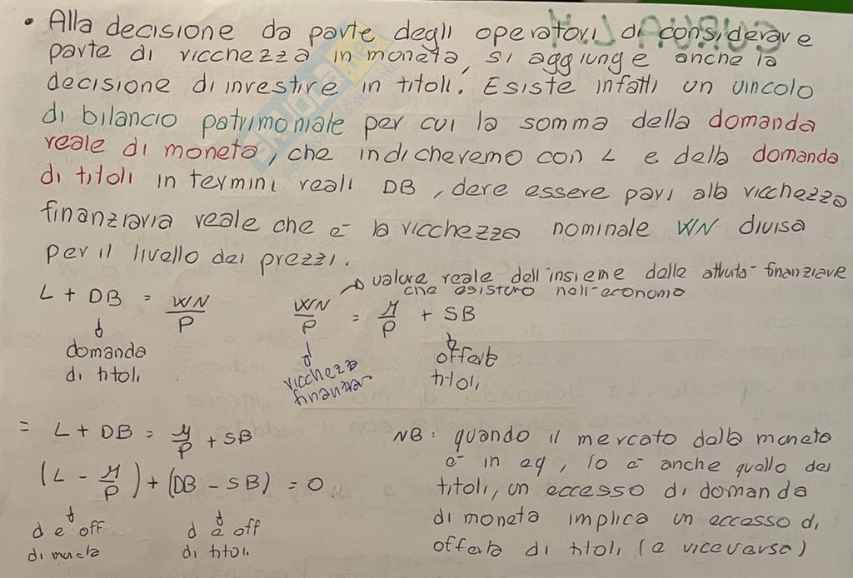 • Alla decisione da parte degli operatori di considerare
parte di ricchezza in moneta, si aggiunge anche la
decisione di investire in titoli. Esiste infatti un vincolo
di bilancio patrimoniale per cui la somma della domanda
reale di moneta, che indicheremo con L e della domanda
di titoli in termini reali DB, deve essere pari alla ricchezza
finanziaria reale che è la ricchezza nominale WN divisa
per il livello dei prezzi.
valore reale dell'insieme delle attività finanziarie
che esistono nell'economia
L + DB = WN/P
WN/P = M/P + SB
domanda
di titoli
ricchezza
finanziar
offerta
titoli
= L + DB = M/P + SB
(L - M/P) + (DB - SB) = 0
d e off
di moneta
d e off
di titoli
NB: quando il mercato della moneta
è in eq, lo è anche quello dei
titoli, un eccesso di domanda
di moneta implica un eccesso di
offerta di titoli (e viceversa)